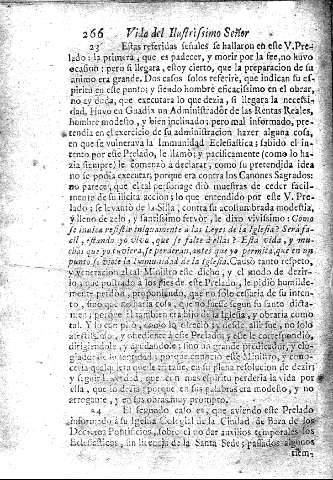 266 Vida del Ilustrissimo Señor
23 Estas referidas señales se hallaron en este V. Pre-
lado: la primera, que es padecer, y morir por la fee, no huvo
ocasion; pero si llegara, estoy cierto, que la preparacion de su
animo era grande. Dos casos solos referirè, que indican su es-
piritu en este punto; y siendo hombre eficacissimo en el obrar,
no ay duda, que executara lo que dezia, si llegara la necessi-
dad. Huvo en Guadix un Administrador de las Rentas Reales,
hombre modesto, y bien inclinado; pero mal informado, pre-
tendia en el exercicio de su administracion hazer alguna cosa,
en que se vulnerava la Immunidad Eclesiastica; sabido el in-
tento por este Prelado, le llamò; y pacificamente (como lo ha-
zia siempre) le comenzò a declarar, como su pretendida idea
no se podia executar; porque era contra los Canones Sagrados:
no pareze, que el tal personage diò muestras de ceder facil-
mente de su ilicita accion; lo que entendido por este V. Pre-
lado; se levantò de la Silla, y contra su acostumbrada modestia,
y lleno de zelo, y santissimo fervor, le dixo vivissimo: Como
se intenta resistir iniquamente a las Leyes de la Iglesia? Serà fa-
cil, estando yo viva, que se falte a ellas? Esta vida, y mu-
chas que yo tuviera, se perderàn, antes que yo permita, que en un
punto se viole la Immunidad de la Iglesia. Causò tanto respeto,
y veneracion al tal Ministro este dicho, y el modo de dezir-
lo; que postrado a los pies de este Prelado, le pidiò humilde-
mente perdon, proponiendo, que no solo cessaria de su inten-
to, sino que no haria cosa, que no fuesse segun su santo dicta-
men; porque èl tambien era hijo de la Iglesia, y obraria como
tal. Y lo cumpliò, como lo ofreciò
y obediencia a este Prelado; y este le correspondiò,
dirigiendole, y ayudandole; sino grande predicador, y elo-
giador de
ella, que lo dezia porque en sus palabras era modesto, y no
arrogante, y en sus obras muy prompto.
24 El segundo caso es, que aviendo este Prelado
informado a su Iglesia Colegial de la Ciudad de Baza de los
Decretos Pontificios, sobre el no dar auxilios temporales los
Eclesiasticos, sin licencia de la Santa Sede; passados algunos
tiem-